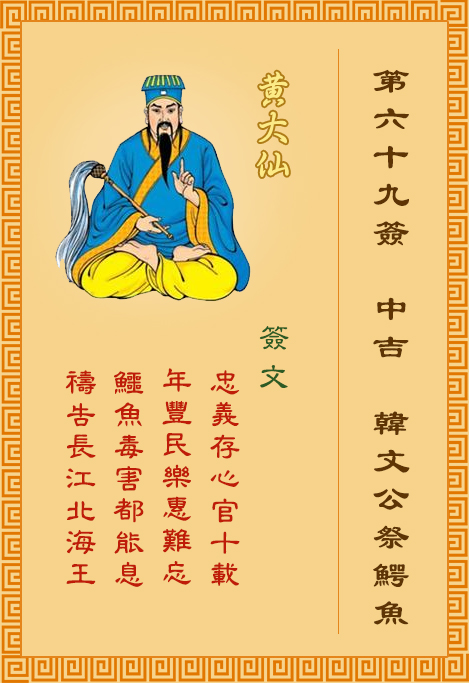 第六十九簽 中吉 韓文公祭鱷魚
黃大仙
簽文
忠義存心官十載
年豐民樂惠難忘
鱷魚毒害都能息
禱告長江北海王